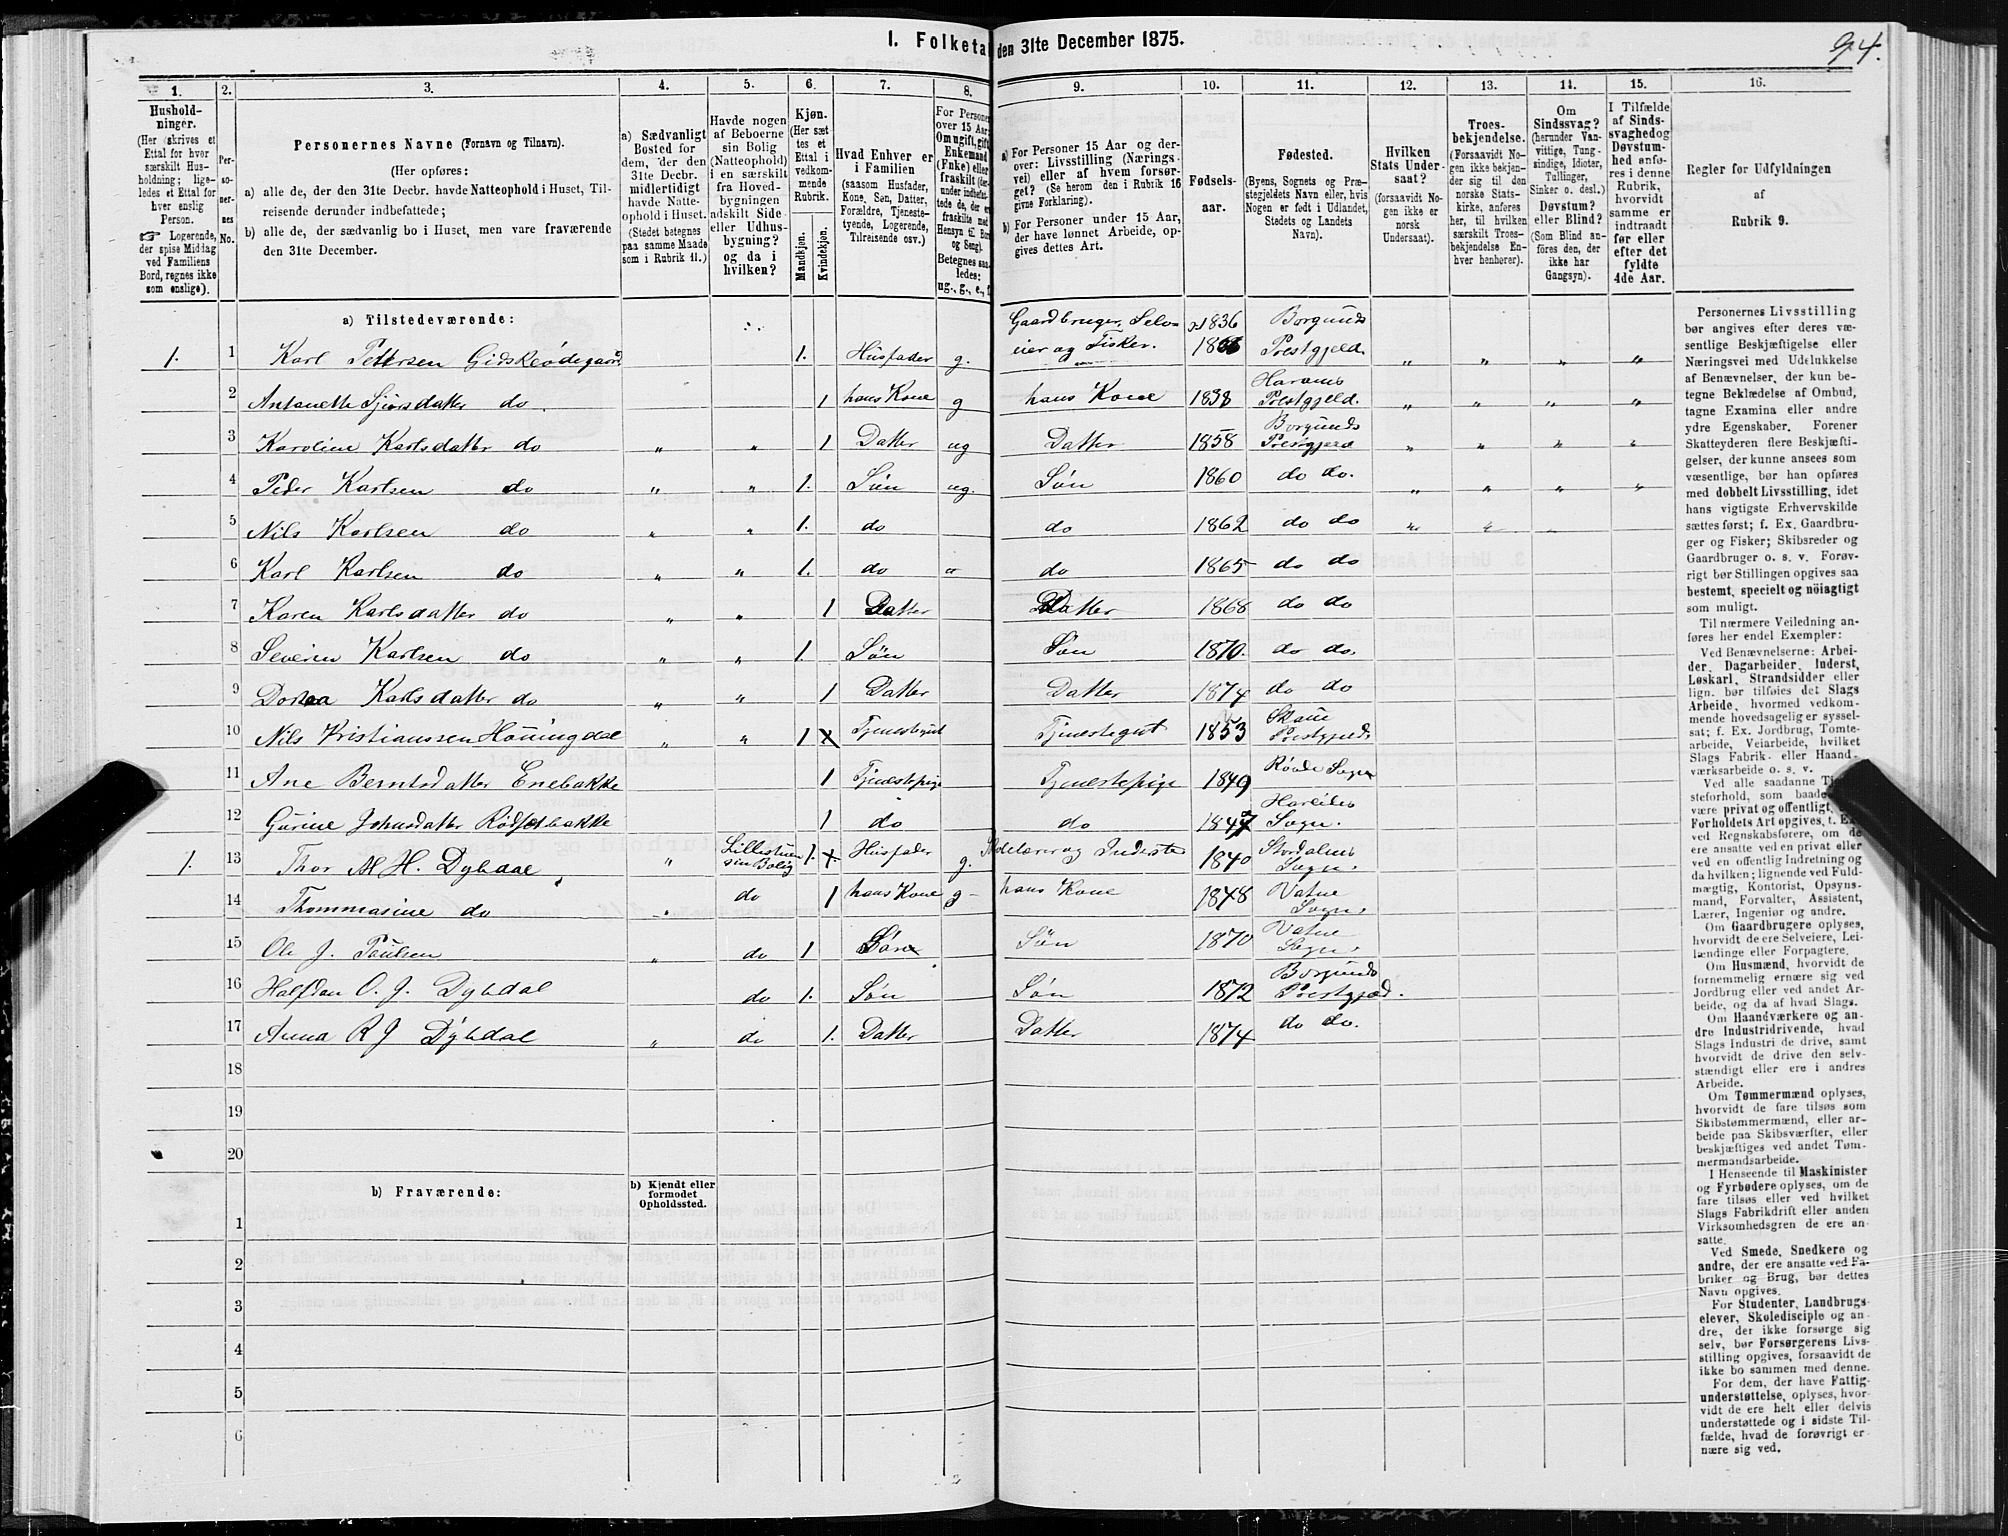 1. Folketal den 31te December 1875.
94.
1. 2. 3. 4. 5. 6. 7. 8. 9. 10. 11. 12. 13. 14. 15. 16.
Hushold-
ninger.
(Her skrives et
Ettal for hver
særskilt Hus-
holdning; lige-
ledes et Ettal for
hver enslig
Person.
☞ Logerende,
der spise Middag
ved Familiens
Bord, regnes ikke
som enslige).
Per-
so-
ner-
nes
No.
Personernes Navne (Fornavn og Tilnavn).
(Her opføres:
a) alle de, der den 31te Decbr. havde Natteophold i Huset, Til-
reisende derunder indbefattede;
b) alle de, der sædvanlig bo i Huset, men vare fraværende
den 31te December.
a) Sædvanligt
Bosted for
dem, der den
31te Decbr.
midlertidigt
havde Natte-
ophold i Huset.
(Stedet betegnes
paa samme Maade
som i Rubrik 11.)
Havde nogen
af Beboerne
sin Bolig
(Natteophold)
i en særskilt
fra Hoved-
bygningen
adskilt Side-
eller Udhus-
bygning?
og da i
hvilken?
Kjøn.
(Her sæt-
tes et
Ettal i
vedkom-
mende
Rubrik.
Mandkjøn.
Kvindekjøn.
Hvad Enhver er
i Familien
(saasom Husfader,
Kone, Søn, Datter,
Forældre, Tjeneste-
tyende, Logerende,
Tilreisende osv.)
For Personer
over 15 Aar:
Om ugift, gift,
Enkemand
(Enke) eller
fraskilt
Betegnes saa-
ledes:
ug., g., e., f.
a) For Personer 15 Aar og der-
over: Livsstilling (Nærings-
vei) eller af hvem forsør-
get? (Se herom den i Rubrik 16
givne Forklaring).
b) For Personer under 15 Aar,
der have lønnet Arbeide, op-
gives dettes Art.
Fødsels-
aar.
Fødested.
(Byens, Sognets og Præ-
stegjeldets Navn eller, hvis
Nogen er født i Udlandet,
Stedets og Landets
Navn).
Hvilken
Stats Under-
saat?
(forsaavidt No-
gen ikke er
norsk
Undersaat).
Troes-
bekjendelse.
(Forsaavidt No-
gen ikke bekjen-
der sig til den
norske Stats-
kirke, anføres
her, til hvilken
særskilt Troes-
bekjendelse En-
hver henhører).
Om
Sindssvag?
(herunder Van-
vittige, Tung-
sindige, Idioter,
Tullinger,
Sinker o. desl.)
Døvstum?
eller Blind?
(Som Blind an-
føres den, der
ikke har
Gangsyn).
I Tilfælde
af Sinds-
svaghed og
Døvstum-
hed anfø-
res i denne
Rubrik,
hvorvidt
samme er
indtraadt
før eller
efter det
fyldte
4de Aar.
Regler for Udfyldningen
af
Rubrik 9.
a) Tilstedeværende:
1. 1 Karl Pettersen Gidskeødegaard 1. Husfader g. Gaardbruger, Selv- eier og Fisker. 1836 Borgunds Prestgjeld. „ „ „ „
2 Antonette Sjursdatter do. 1 hans Kone g hans Kone 1838 Harams Prestgjeld. „ „ „ „
3 Karoline Karlsdatter do „ „ 1 Datter ug Datter 1858 Borgunds Prestgjeld „ „ „ „
4 Peder Karlsen do „ „ 1. Søn ug. Søn 1860 do do. „ „ „ „
5 Nils Karlsen do „ „ 1. do do 1862 do do „ „ „
6 Karl Karlsen do „ „ 1. do „ do 1865 do do
7 Karen Karlsdatter do „ „ 1 Datter Datter 1868 do do
8 Severin Karlsen do „ „ 1. Søn Søn 1870. do do.
9 Karlsdatter do „ „ 1 Datter Datter 1874 do do
10 Nils Kristianssen Hørningdal „ „ 1 Tjenestegut Tjenestegut 1853 Prestgjeld.
11 Ane Berntsdatter Enebakke 1 Tjenestepige Tjenestepige 1849 Røvde Sogn
12 Gurine Johnsdatter Rødsetbakke 1 do do Hareides Sogn.
1. 13 Thor H. Dybdal „ Lillestuen sin Bolig 1. Husfader g. Inderste 1840 Stordalens Sogn.
14 Thommasine do „ do 1 hans Kone g hans Kone 1848 Vatne Sogn.
15 Ole J. Paulsen „ do 1 Søn Søn 1870 Vatne Sogn.
16 Halfdan O. J. Dybdal do 1. Søn Søn 1872 Borgunds Prestgjed.
17 Anna R J Dybdal „ do 1. Datter Datter 1874 do do.
18
19
20
b) Fraværende:
b) Kjendt eller
formodet
Opholdssted.
1
2
3
4
5
6
Personernes Livsstilling
bør angives efter deres væ-
sentlige Beskjæftigelse eller
Næringsvei med Udelukkelse
af Benævnelser, der kun be-
tegne Beklædelse af Ombud,
tagne Examina eller andre
ydre Egenskaber. Forener
Skatteyderen flere Beskjæfti-
gelser, der kunne ansees som
væsentlige, bør han opføres
med dobbelt Livsstilling, idet
hans vigtigste Erhvervskilde
sættes først; f. Ex. Gaardbru-
ger og Fisker; Skibsreder og
Gaardbruger o. s. v. Forøv-
rigt bør Stillingen opgives saa
bestemt, specielt og nöiagtigt
som muligt.
Til nærmere Veiledning an-
føres her endel Exempler:
Ved Benævnelserne: Arbei-
der, Dagarbeider, Inderst,
Løskarl, Strandsidder eller
lign. bør tilføies det Slags
Arbeide, hvormed vedkom-
mende hovedsagelig er syssel-
sat; f. Ex. Jordbrug, Tomte-
arbeide, Veiarbeide, hvilket
Slags Fabrik- eller Haand-
værksarbeide o. s. v.
Ved alle saadanne
steforhold, som baade
være privat og offentligt,
Forholdets Art opgives, t. Ex.
ved Regnskabsførere, om de
ere ansatte ved en privat eller
ved en offentlig Indretning og
da hvilken; lignende ved Fuld-
mægtig, Kontorist, Opsyns-
mand, Forvalter, Assistent,
Lærer, Ingeniør og andre.
Om Gaardbrugere oplyses,
hvorvidt de ere Selveiere, Lei-
lændinge eller Forpagtere.
Om Husmænd, hvorvidt de
fornemmelig ernære sig ved
Jordbrug eller ved andet Ar-
beide, og da af hvad Slags.
Om Haandværkere og an-
dre Industridrivende, hvad
Slags Industri de drive, samt
hvorvidt de drive den selv-
stændigt eller ere i andres
Arbeide.
Om Tømmermænd oplyses,
hvorvidt de fare tilsøs som
Skibstømmermænd, eller ar-
beide paa Skibsværfter, eller
beskjæftiges ved andet Tøm-
mermandsarbeide.
I Henseende til Maskinister
og Fyrbødere oplyses, om de
fare tilsøs eller ved hvilket
Slags Fabrikdrift eller anden
Virksomhedsgren de ere an-
satte.
Ved Smede, Snedkere og
andre, der ere ansatte ved Fa-
briker og Brug, bør dettes
Navn opgives.
For Studenter, Landbrugs-
elever, Skoledisciple og an-
dre, der ikke forsørge sig
selv, bør Forsørgerens Livs-
stilling opgives, forsaavidt de
ikke bo sammen med denne.
For dem, der have Fattig-
understøttelse, oplyses, hvor-
vidt de ere helt eller delvis
understøttede og i sidste Til-
fælde, hvad de forøvrigt er-
nære sig ved.